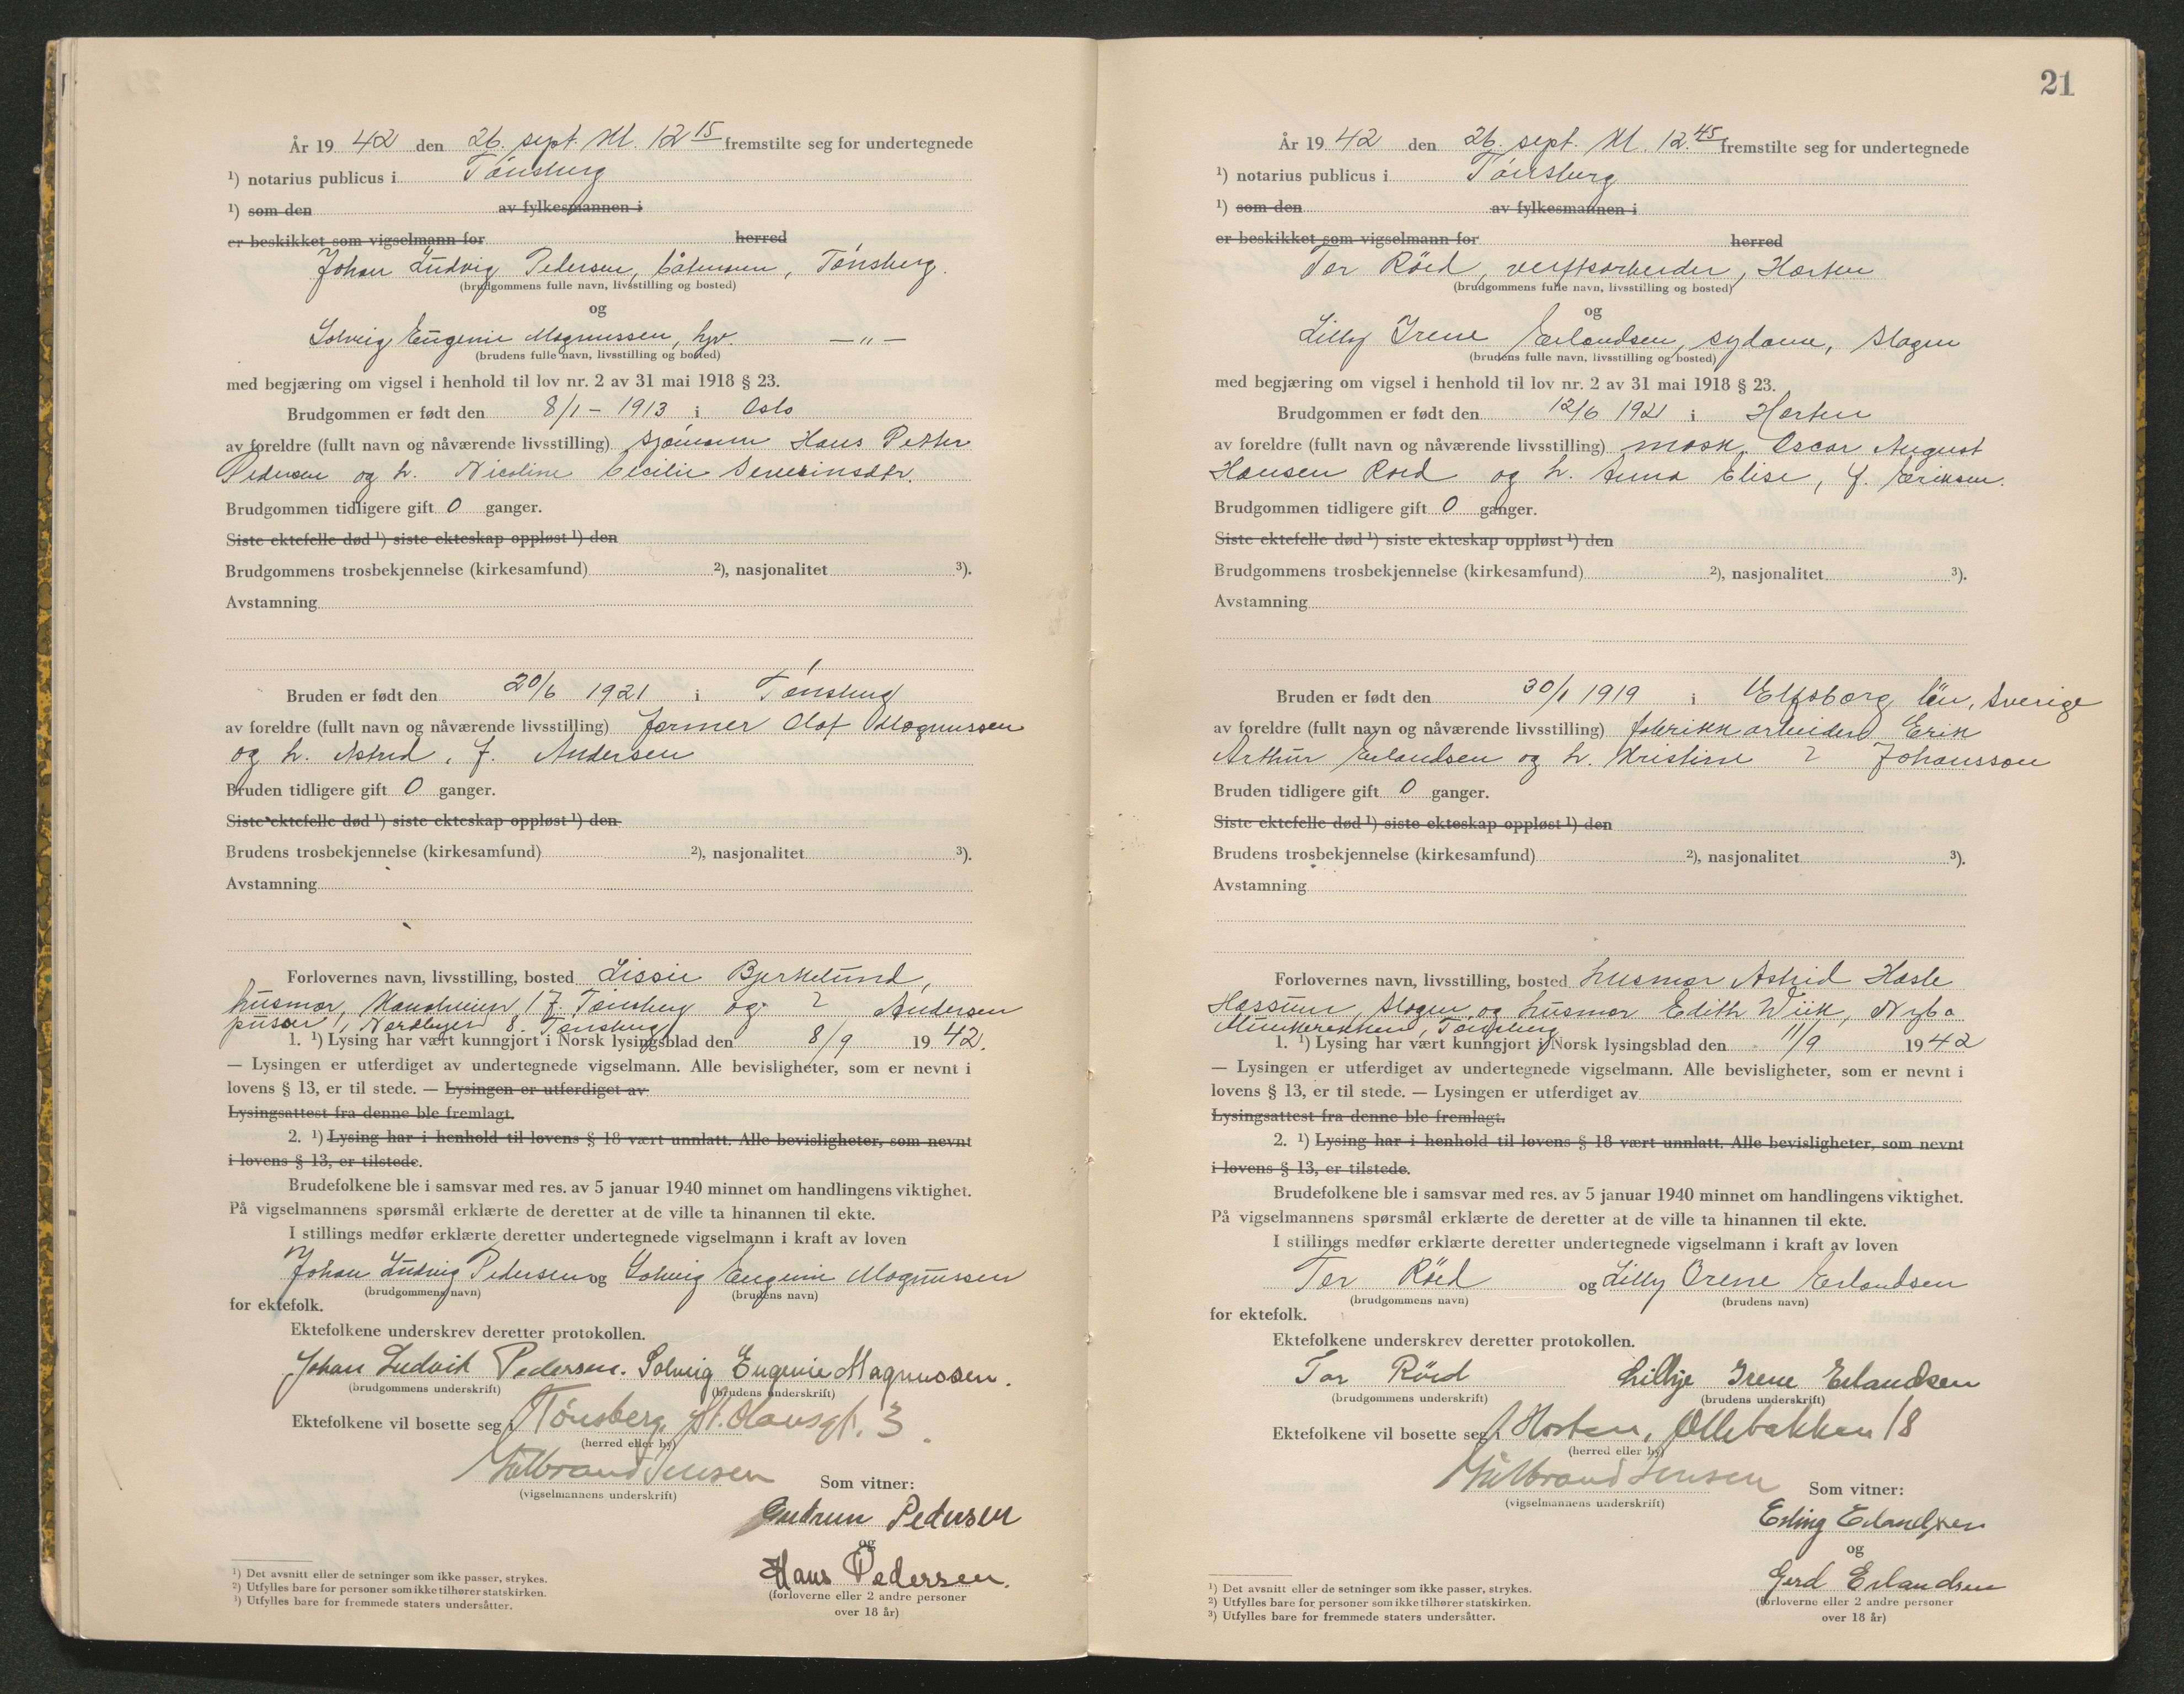 År 19 42 den 26. sept. kl. 12 15 fremstilte seg for undertegnede
¹) notarius publicus i Tönsberg
¹) som den av fylkesmannen i
er beskikket som vigselmann for herred
Johan Ludvig Pedersen, båtsmann, Tönsberg.
(brudgommens fulle navn, livsstilling og bosted)
og
Solveig Eugenie Magnussen, hjv. — „ —
(brudens fulle navn, livsstilling og bosted)
med begjæring om vigsel i henhold til lov nr. 2 av 31 mai 1918 § 23.
Brudgommen er født den 8/1 - 1913 i Oslo
av foreldre (fullt navn og nåværende livsstilling) sjömann Hans Petter
Pedersen og h. Nicoline Cecilie Severinsdtr.
Brudgommen tidligere gift 0 ganger.
Siste ektefelle død ¹) siste ekteskap oppløst ¹) den
Brudgommens trosbekjennelse (kirkesamfund) ²), nasjonalitet ³).
Avstamning
Bruden er født den 20/6 1921 i Tönsberg
av foreldre (fullt navn og nåværende livsstilling) former Olaf Magnussen
og h. Astrid, f. Andersen
Bruden tidligere gift 0 ganger.
Siste ektefelle død ¹) siste ekteskap oppløst ¹) den
Brudens trosbekjennelse (kirkesamfund) ²), nasjonalitet ³).
Avstamning
Forlovernes navn, livsstilling, bosted Lissie Bjerkelund,
husmor, 17, Tönsberg og ? Andersen
pusser, Nordbyen 8. Tönsberg
1. ¹) Lysing har vært kunngjort i Norsk lysingsblad den 8/9 19 42.
— Lysingen er utferdiget av undertegnede vigselmann. Alle bevisligheter, som er nevnt i
lovens § 13, er til stede. — Lysingen er utferdiget av
Lysingsattest fra denne ble fremlagt.
2. ¹) Lysing har i henhold til lovens § 18 vært unnlatt. Alle bevisligheter, som nevnt
i lovens § 13, er tilstede.
Brudefolkene ble i samsvar med res. av 5 januar 1940 minnet om handlingens viktighet.
På vigselmannens spørsmål erklærte de deretter at de ville ta hinannen til ekte.
I stillings medfør erklærte deretter undertegnede vigselmann i kraft av loven
Johan Ludvig Pedersen og Solveig Eugenie Magnussen
(brudgommens navn) (brudens navn)
for ektefolk.
Ektefolkene underskrev deretter protokollen.
Johan Ludvik Pedersen. Solveig Eugenie Magnussen.
(brudgommens underskrift) (brudens underskrift)
Ektefolkene vil bosette seg i Tönsberg, St. Olavsgt. 3.
(herred eller by)
Gulbrand Jensen
(vigselmannens underskrift)
Som vitner:
Gudrun Pedersen
og
Hans Pedersen.
(forloverne eller 2 andre personer
over 18 år)
¹) Det avsnitt eller de setninger som ikke passer, strykes.
²) Utfylles bare for personer som ikke tilhører statskirken.
³) Utfylles bare for fremmede staters undersåtter.
21
År 19 42 den 26. sept. kl. 12.45 fremstilte seg for undertegnede
¹) notarius publicus i Tönsberg
¹) som den av fylkesmannen i
er beskikket som vigselmann for herred
Tor Röed, verftsarbeider, Horten
(brudgommens fulle navn, livsstilling og bosted)
og
Lilly Irene Erlandsen, sydame, Slagen
(brudens fulle navn, livsstilling og bosted)
med begjæring om vigsel i henhold til lov nr. 2 av 31 mai 1918 § 23.
Brudgommen er født den 12/6 1921 i Horten
av foreldre (fullt navn og nåværende livsstilling) mask. Oscar August
Hansen Roed og h. Anna Elise, f. Eriksen.
Brudgommen tidligere gift 0 ganger.
Siste ektefelle død ¹) siste ekteskap oppløst ¹) den
Brudgommens trosbekjennelse (kirkesamfund) ²), nasjonalitet ³).
Avstamning
Bruden er født den 30/1 1919 i Elfsborg län, Sverige
av foreldre (fullt navn og nåværende livsstilling) fabrikkarbeider Erik
Arthur Erlandsen og h. Kristine ? Johansson
Bruden tidligere gift 0 ganger.
Siste ektefelle død ¹) siste ekteskap oppløst ¹) den
Brudens trosbekjennelse (kirkesamfund) ²), nasjonalitet ³).
Avstamning
Forlovernes navn, livsstilling, bosted husmor Astrid Hasle
Hassum, Slagen, og husmor Edith Wiik,
Tönsberg
1. ¹) Lysing har vært kunngjort i Norsk lysingsblad den 11/9 19 42
— Lysingen er utferdiget av undertegnede vigselmann. Alle bevisligheter, som er nevnt i
lovens § 13, er til stede. — Lysingen er utferdiget av
Lysingsattest fra denne ble fremlagt.
2. ¹) Lysing har i henhold til lovens § 18 vært unnlatt. Alle bevisligheter, som nevnt
i lovens § 13, er tilstede.
Brudefolkene ble i samsvar med res. av 5 januar 1940 minnet om handlingens viktighet.
På vigselmannens spørsmål erklærte de deretter at de ville ta hinannen til ekte.
I stillings medfør erklærte deretter undertegnede vigselmann i kraft av loven
Tor Röed og Lilly Irene Erlandsen
(brudgommens navn) (brudens navn)
for ektefolk.
Ektefolkene underskrev deretter protokollen.
Tor Röed Lillye Irene Erlandsen
(brudgommens underskrift) (brudens underskrift)
Ektefolkene vil bosette seg i Horten, Ollebakken 18
(herred eller by)
Gulbrand Jensen
(vigselmannens underskrift)
Som vitner:
Erling Erlandsen
og
Gerd Erlandsen
(forloverne eller 2 andre personer
over 18 år)
¹) Det avsnitt eller de setninger som ikke passer, strykes.
²) Utfylles bare for personer som ikke tilhører statskirken.
³) Utfylles bare for fremmede staters undersåtter.